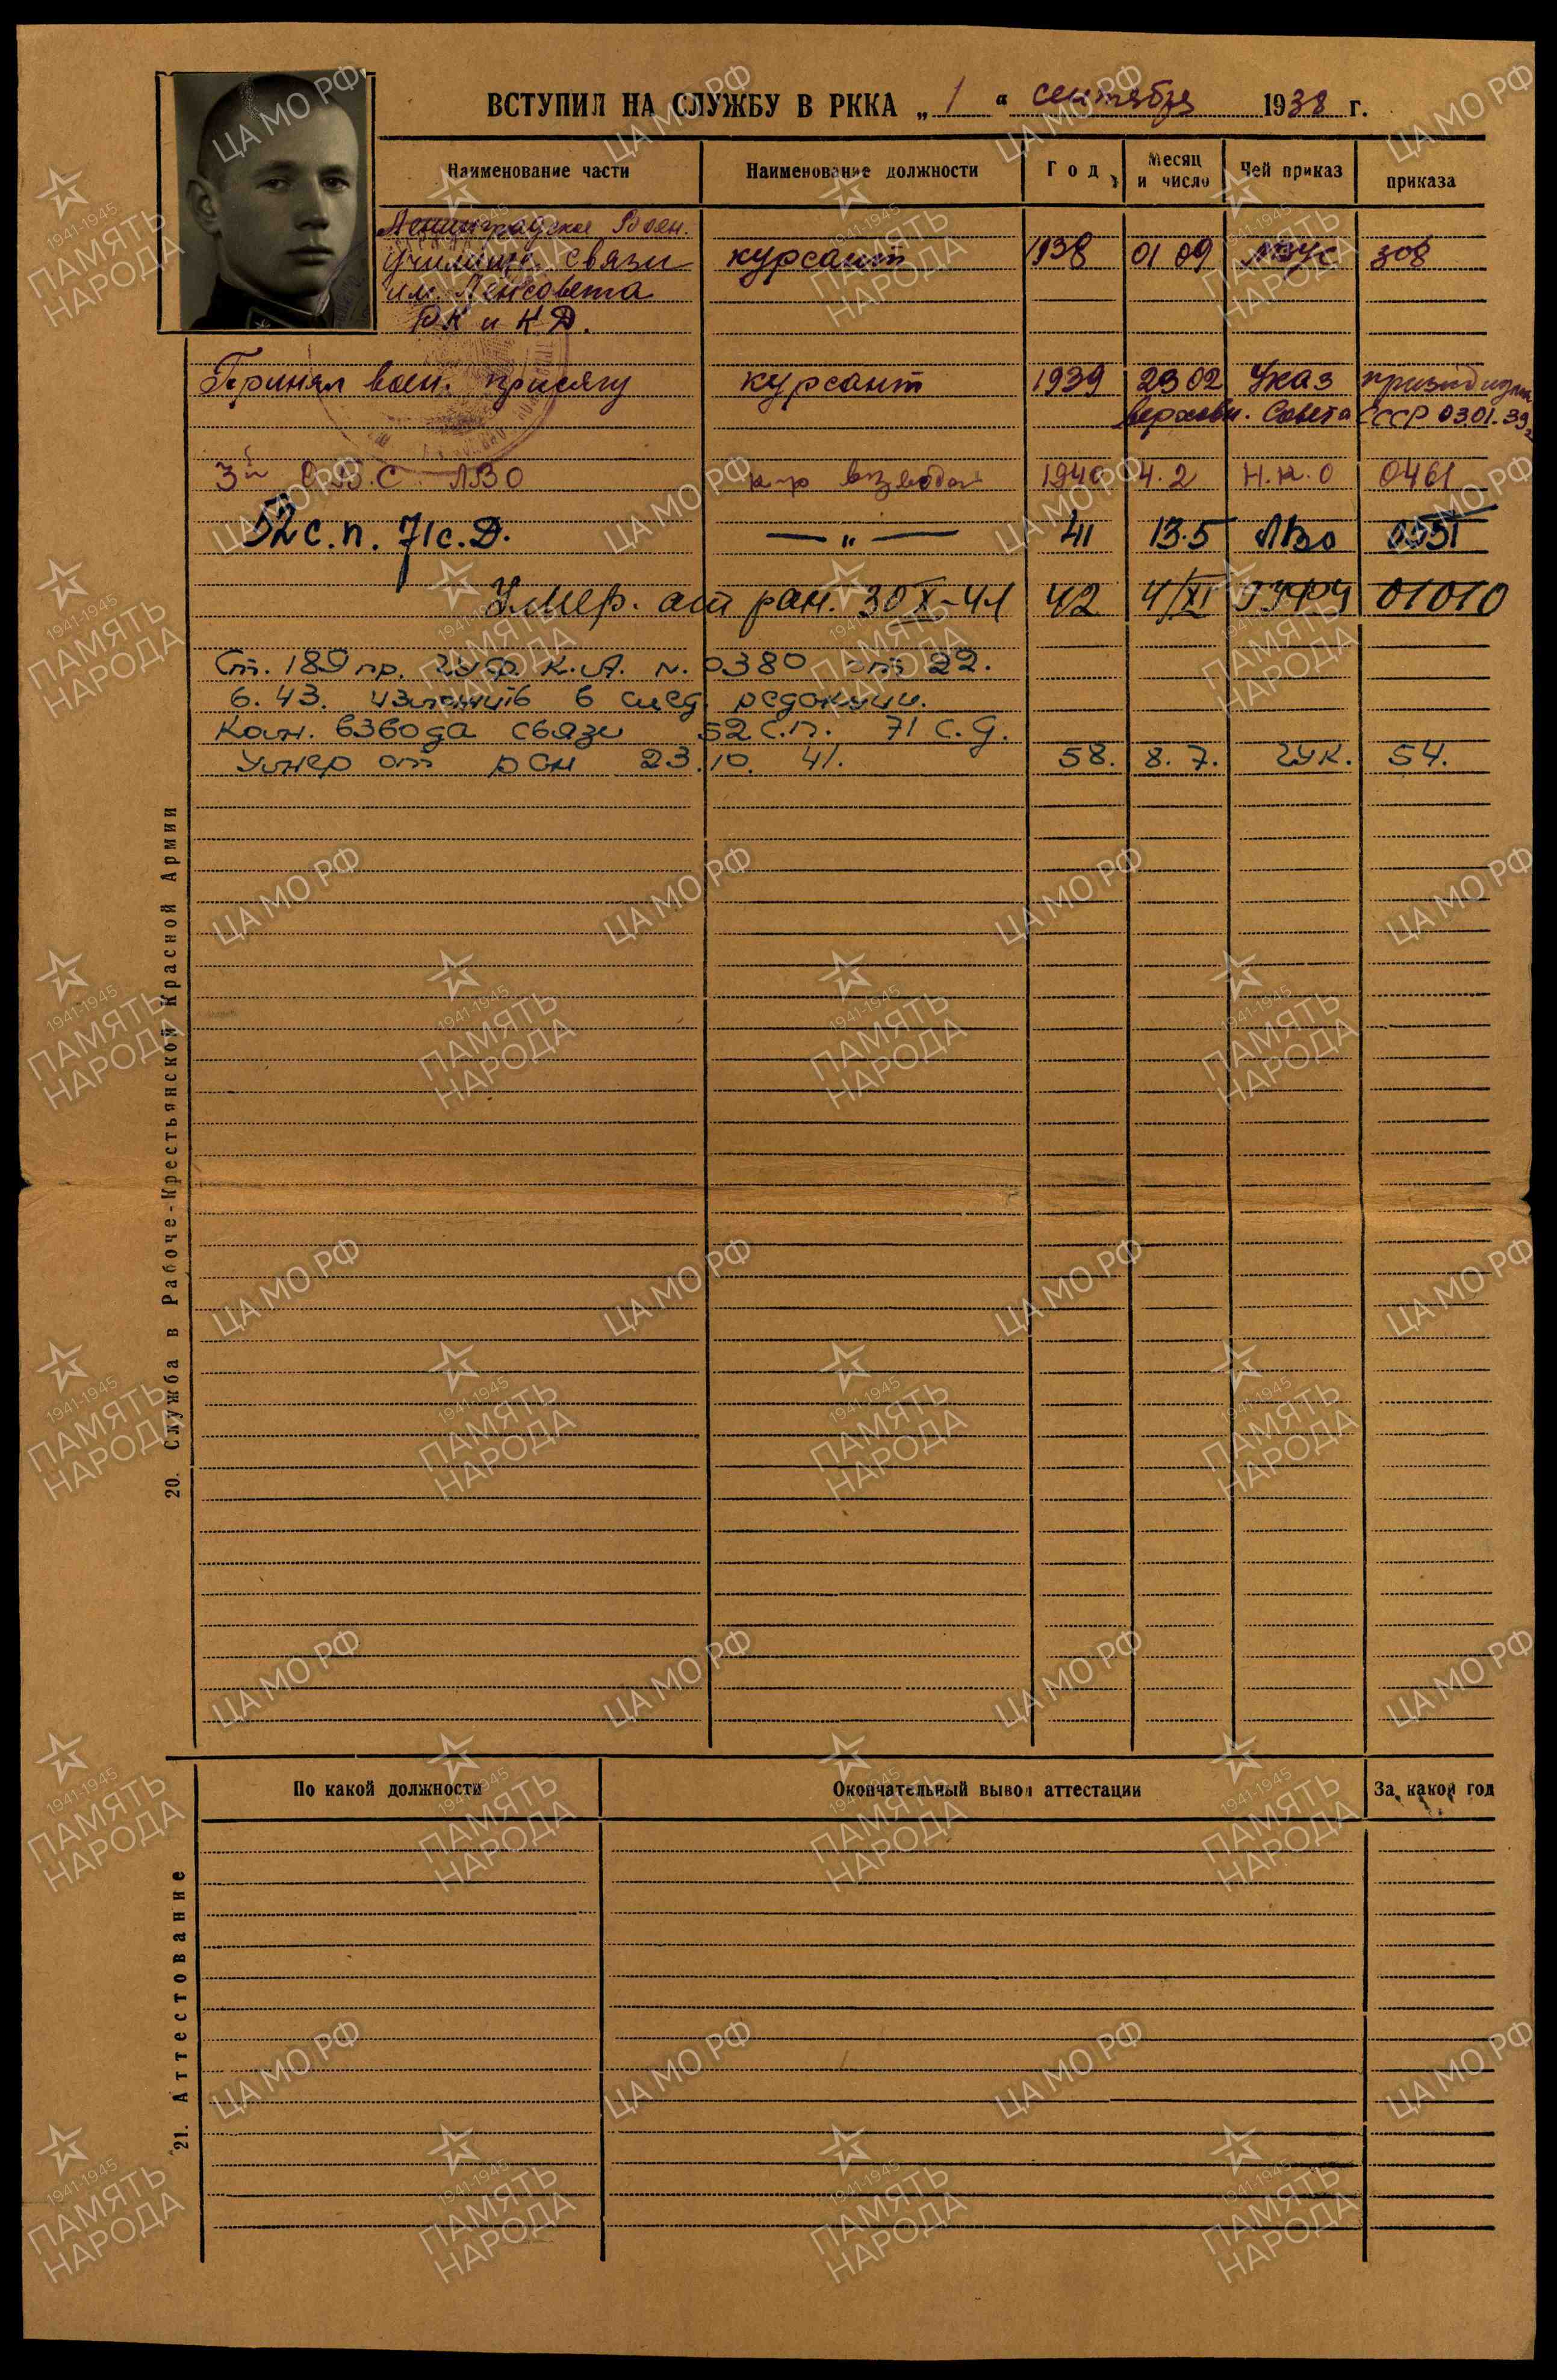 ВСТУПИЛ НА СЛУЖБУ В РККА „ 1 “ сентября 1938 г.
Наименование части Наименование должности Год Месяц и число Чей приказ приказа
Ленинградское Воен.
училище связи курсант 1938 01 09 ЛВУС 308
им. Ленсовета
РК и КД.
Принял воен. присягу курсант 1939 23 02 Указ президиума
Верховн. Совета СССР 03.01.39г
3й ЛВО к-р взвода 1940 4.2 Н.К.О 0461
52 с.п. 71 с.д. — „ — 41 13.5 ЛВО
Умер. от ран. 30 X-41 42 4/XI 01010
Ст. 189 пр. ГУФ. К.А. N. 0380 от 22.
6. 43. изложить в след. редакции.
Ком. взвода связи 52 с.п. 71 с.д.
Умер от ран 23.10.41. 58. 8.7. ГУК. 54.
20. Служба в Рабоче-Крестьянской Красной Армии
По какой должности Окончательный вывод аттестации За какой год
21. Аттестование
ЦА МО РФ
1941-1945
ПАМЯТЬ
НАРОДА